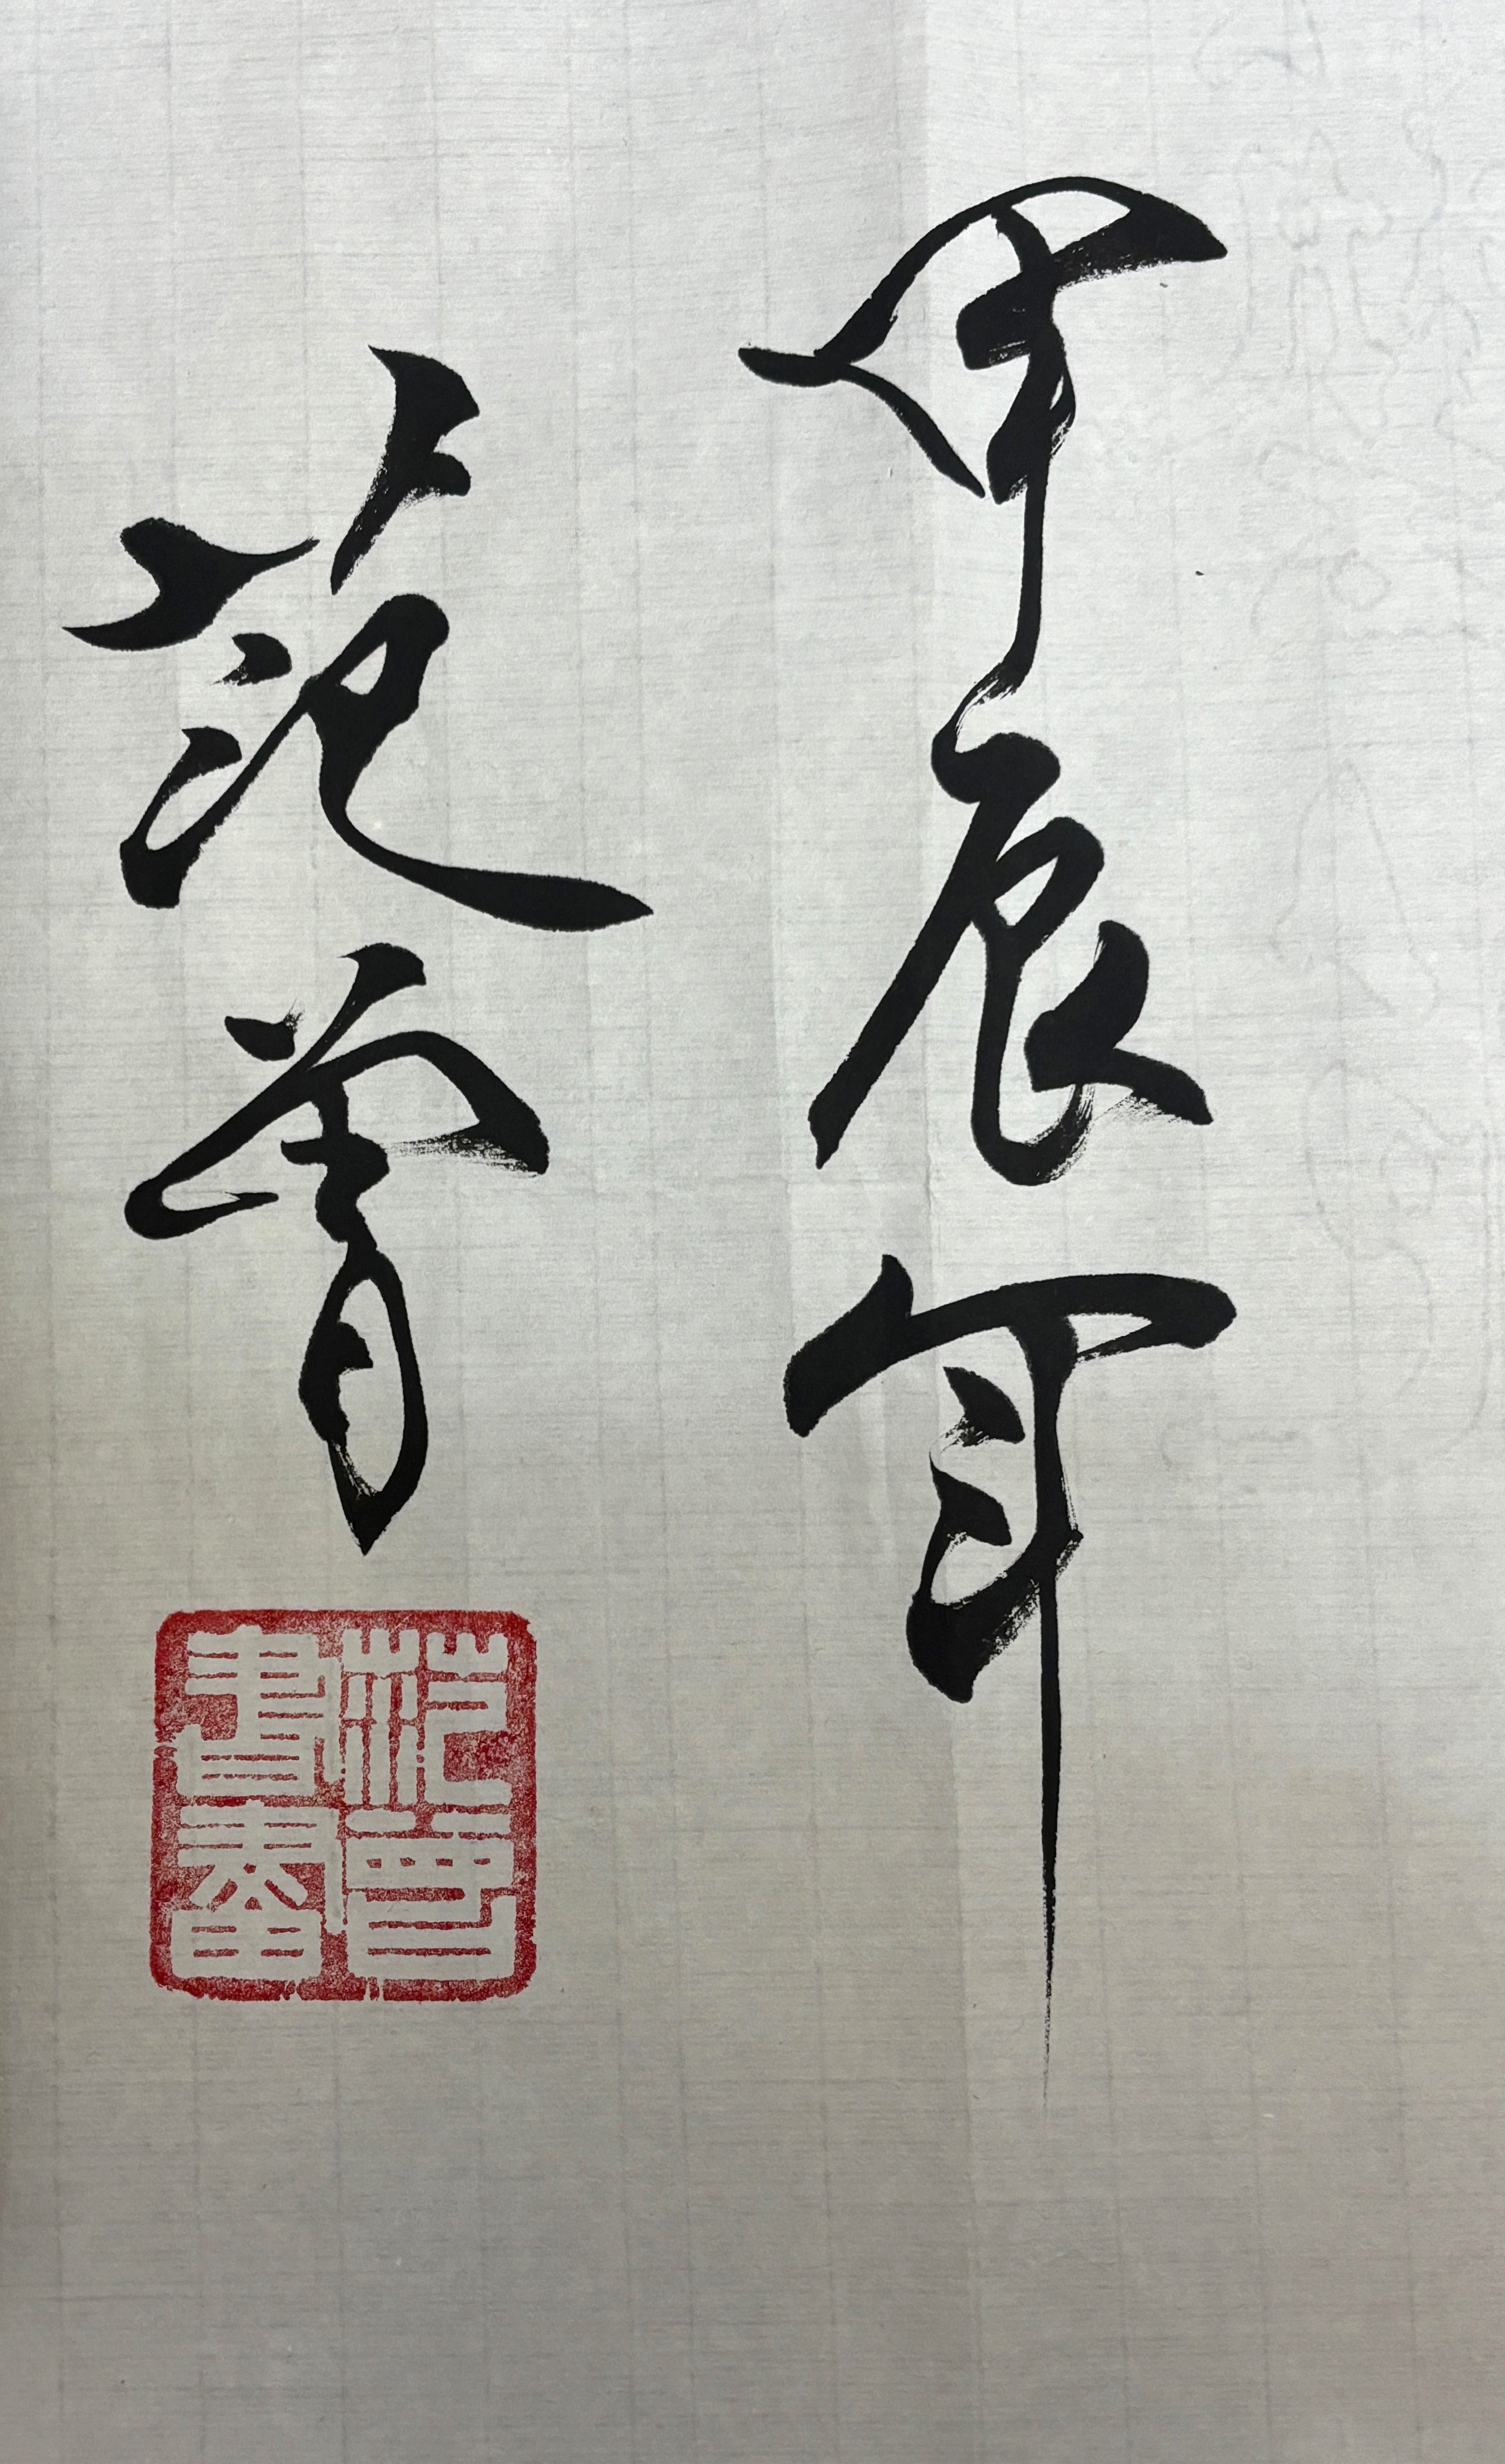 甲辰年
范曾
范曾書畫